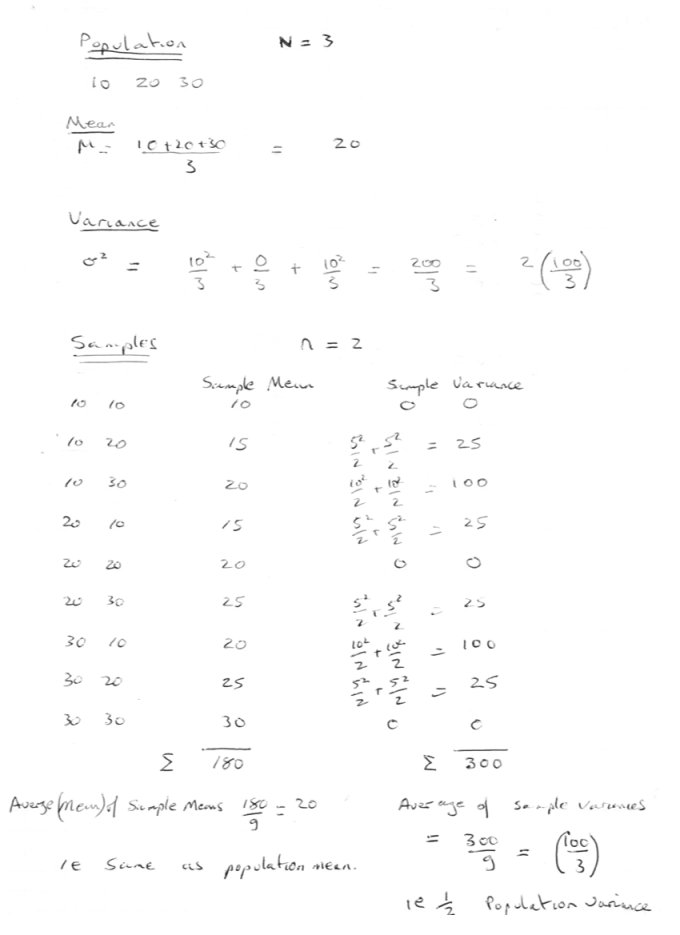 Population N = 3
10 20 30
Mean
μ = 10+20+30 / 3 = 20
Variance
σ² = 10²/3 + 0/3 + 10²/3 = 200/3 = 2(100/3)
Samples n = 2
Sample Mean Sample Variance
10 10 10 0 0
10 20 15 5²/2 + 5²/2 = 25
10 30 20 10²/2 + 10²/2 = 100
20 10 15 5²/2 + 5²/2 = 25
20 20 20 0 0
20 30 25 5²/2 + 5²/2 = 25
30 10 20 10²/2 + 10²/2 = 100
30 20 25 5²/2 + 5²/2 = 25
30 30 30 0 0
Σ 180 Σ 300
Average (Mean) of Sample Means 180/9 = 20
ie Same as population mean.
Average of sample variances
= 300/9 = (100/3)
ie ½ Population variance